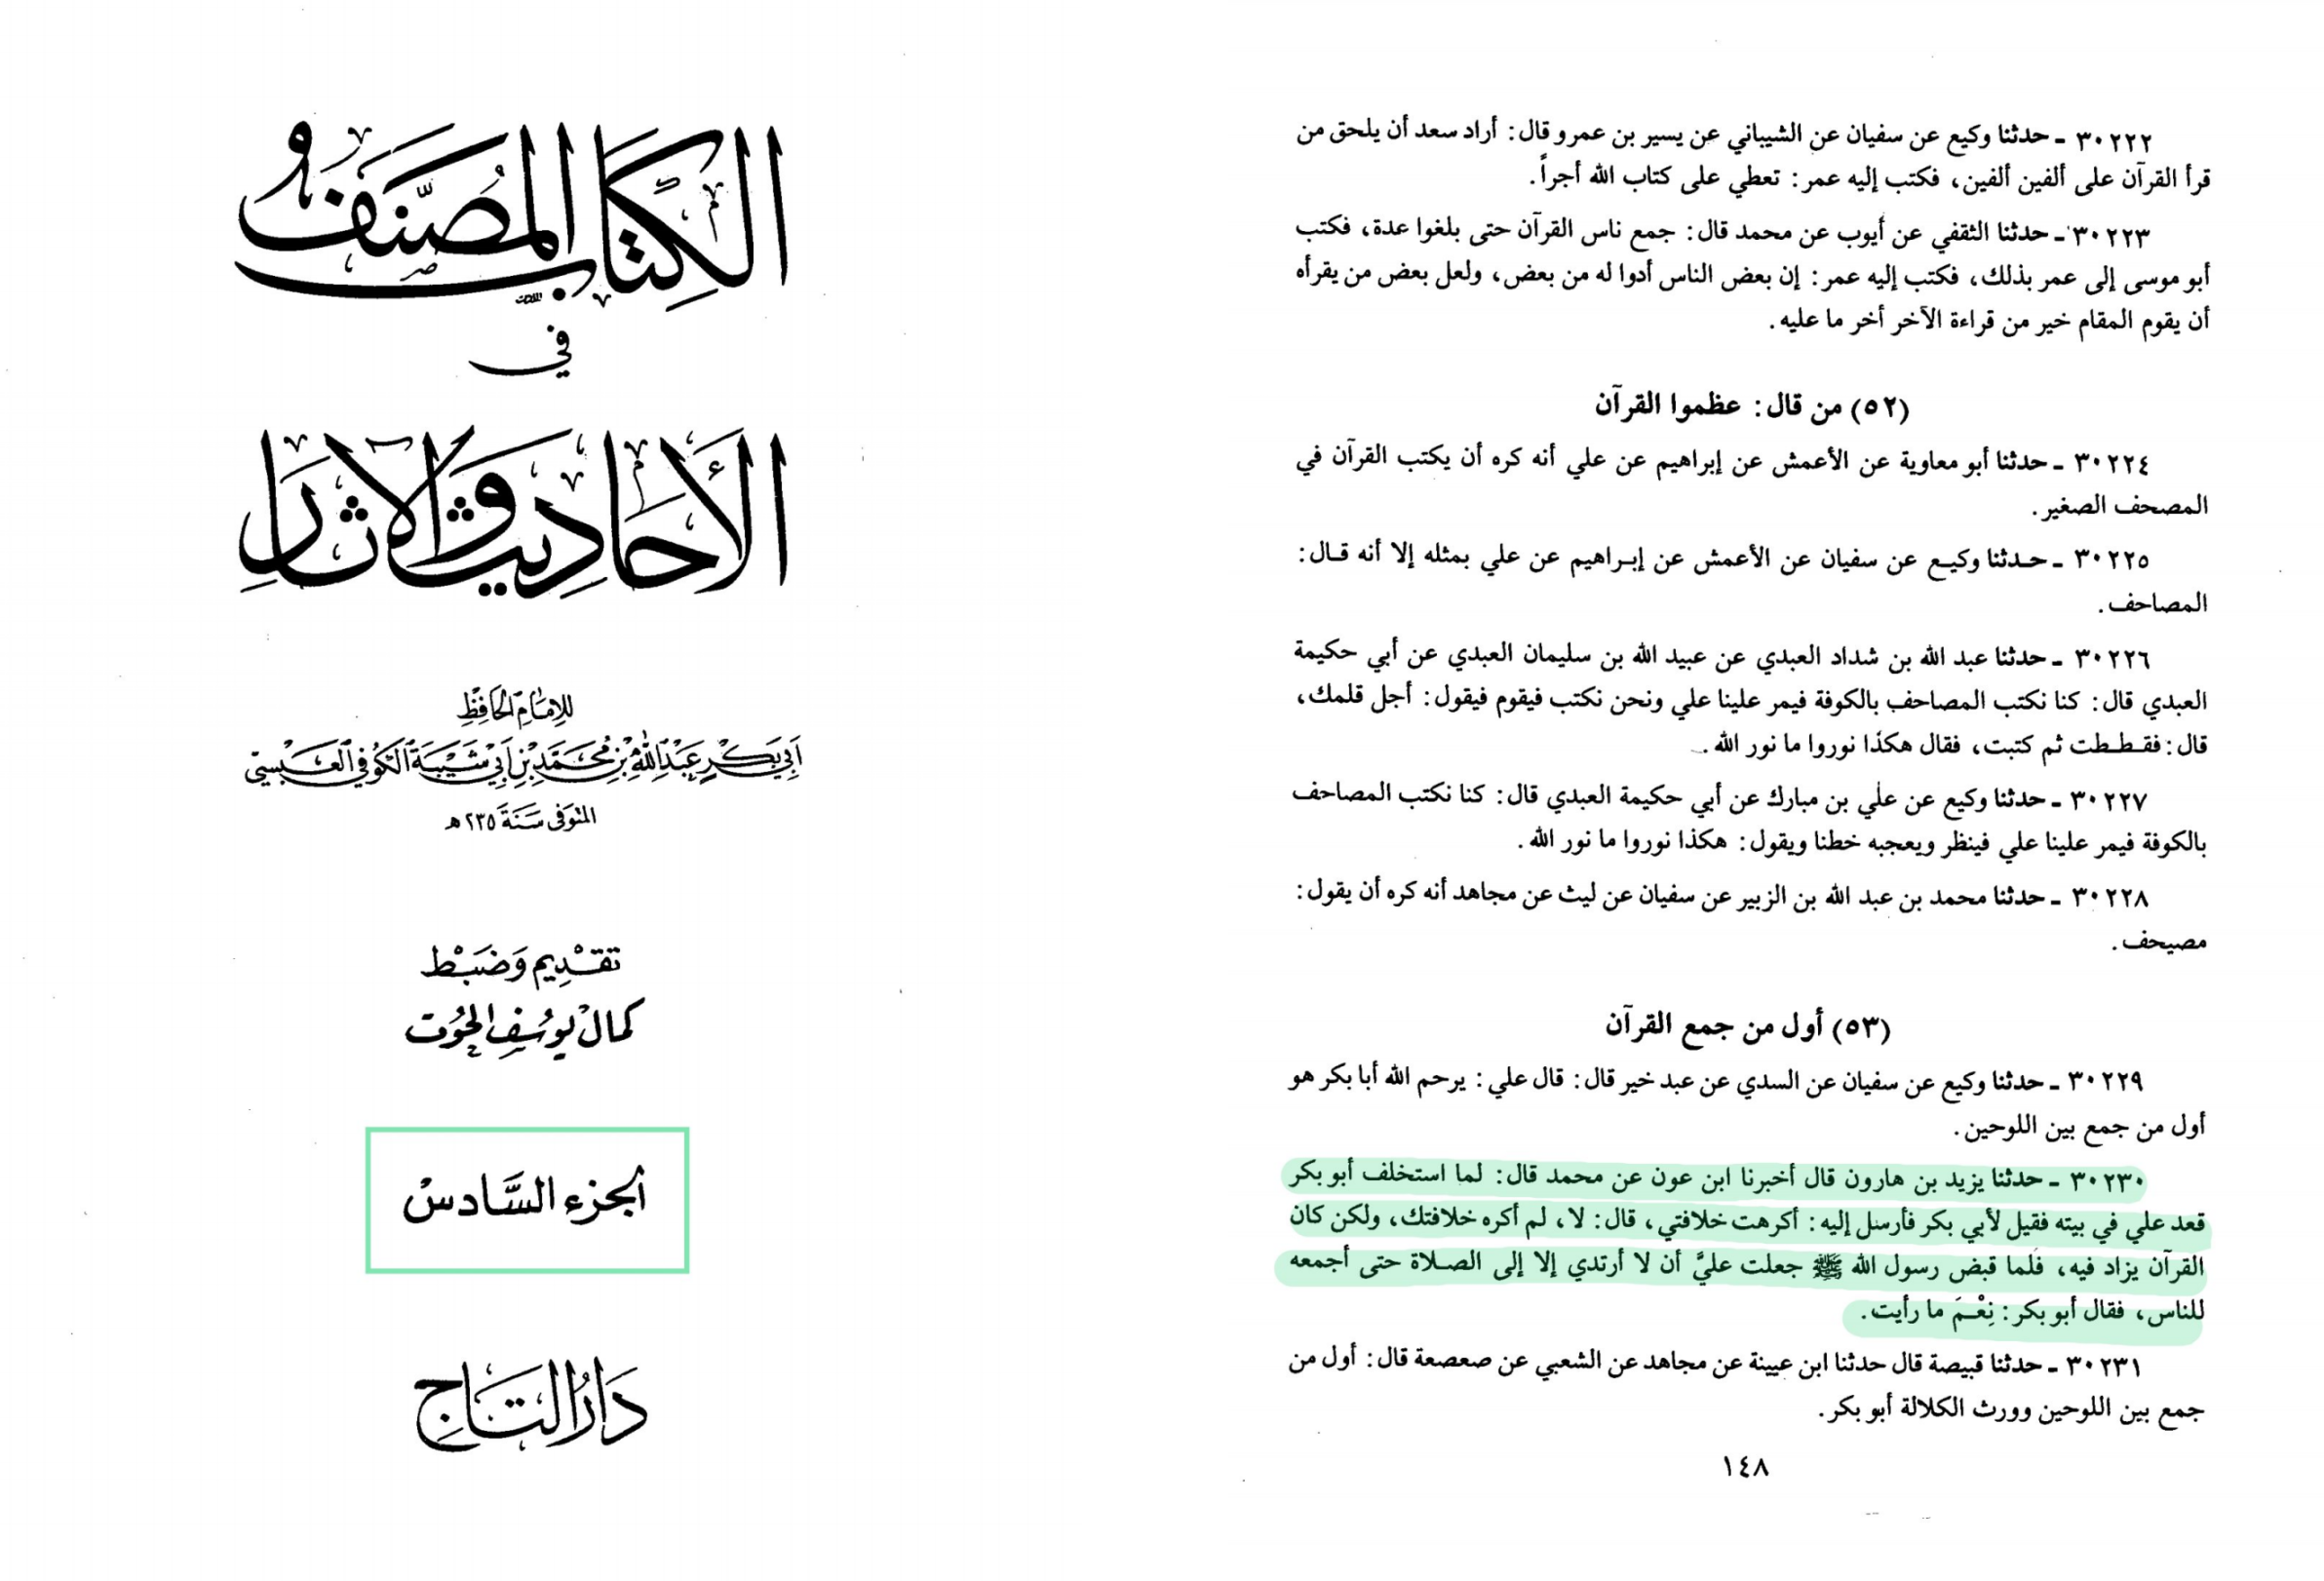 الكِتَابُ المُصَنَّف
في
الأَحَاديثِ وَالآثَارِ
للإمَامِ الحَافِظِ
أَبي بَكْرٍ عَبْدِ اللهِ بْنِ مُحَمَّدِ بْنِ أَبي شَيْبَةَ الكُوفي العَبْسيّ
المتوَفى سَنَةَ ٢٣٥ هـ
تقْدِيم وَضَبْط
كمَال يوسُف الحوُت
الجزء السَّادس
دَارُ التَاج
٣٠٢٢٢ ـ حدثنا وكيع عن سفيان عن الشيباني عن يسير بن عمرو قال: أراد سعد أن يلحق من
قرأ القرآن على ألفين ألفين، فكتب إليه عمر: تعطي على كتاب الله أجراً.
٣٠٢٢٣ ـ حدثنا الثقفي عن أيوب عن محمد قال: جمع ناس القرآن حتى بلغوا عدة، فكتب
أبو موسى إلى عمر بذلك، فكتب إليه عمر: إن بعض الناس أدوا له من بعض، ولعل بعض من يقرأه
أن يقوم المقام خير من قراءة الآخر أخر ما عليه.
(٥٢) من قال: عظموا القرآن
٣٠٢٢٤ ـ حدثنا أبو معاوية عن الأعمش عن إبراهيم عن علي أنه كره أن يكتب القرآن في
المصحف الصغير.
٣٠٢٢٥ ـ حـدثنا وكيـع عن سفيان عن الأعمش عن إبـراهيم عن علي بمثله إلا أنه قـال:
المصاحف.
٣٠٢٢٦ ـ حدثنا عبد الله بن شداد العبدي عن عبيد الله بن سليمان العبدي عن أبي حكيمة
العبدي قال: كنا نكتب المصاحف بالكوفة فيمر علينا علي ونحن نكتب فيقوم فيقول: أجل قلمك،
قال: فقـطـطت ثم كتبت، فقال هكذا نوروا ما نور الله.
٣٠٢٢٧ ـ حدثنا وكيع عن علي بن مبارك عن أبي حكيمة العبدي قال: كنا نكتب المصاحف
بالكوفة فيمر علينا علي فينظر ويعجبه خطنا ويقول: هكذا نوروا ما نور الله.
٣٠٢٢٨ ـ حدثنا محمد بن عبد الله بن الزبير عن سفيان عن ليث عن مجاهد أنه كره أن يقول:
مصيحف.
(٥٣) أول من جمع القرآن
٣٠٢٢٩ ـ حدثنا وكيع عن سفيان عن السدي عن عبد خير قال: قال علي: يرحم الله أبا بكر هو
أول من جمع بين اللوحين.
٣٠٢٣٠ ـ حدثنا يزيد بن هارون قال أخبرنا ابن عون عن محمد قال: لما استخلف أبو بكر
قعد علي في بيته فقيل لأبي بكر فأرسل إليه: أكرهت خلافتي، قال: لا، لم أكره خلافتك، ولكن كان
القرآن يزاد فيه، فلما قبض رسول الله ﷺ جعلت عليَّ أن لا أرتدي إلا إلى الصـلاة حتى أجمعه
للناس، فقال أبو بكر: نِعْـمَ ما رأيت.
٣٠٢٣١ ـ حدثنا قبيصة قال حدثنا ابن عيينة عن مجاهد عن الشعبي عن صعصعة قال: أول من
جمع بين اللوحين وورث الكلالة أبو بكر.
١٤٨